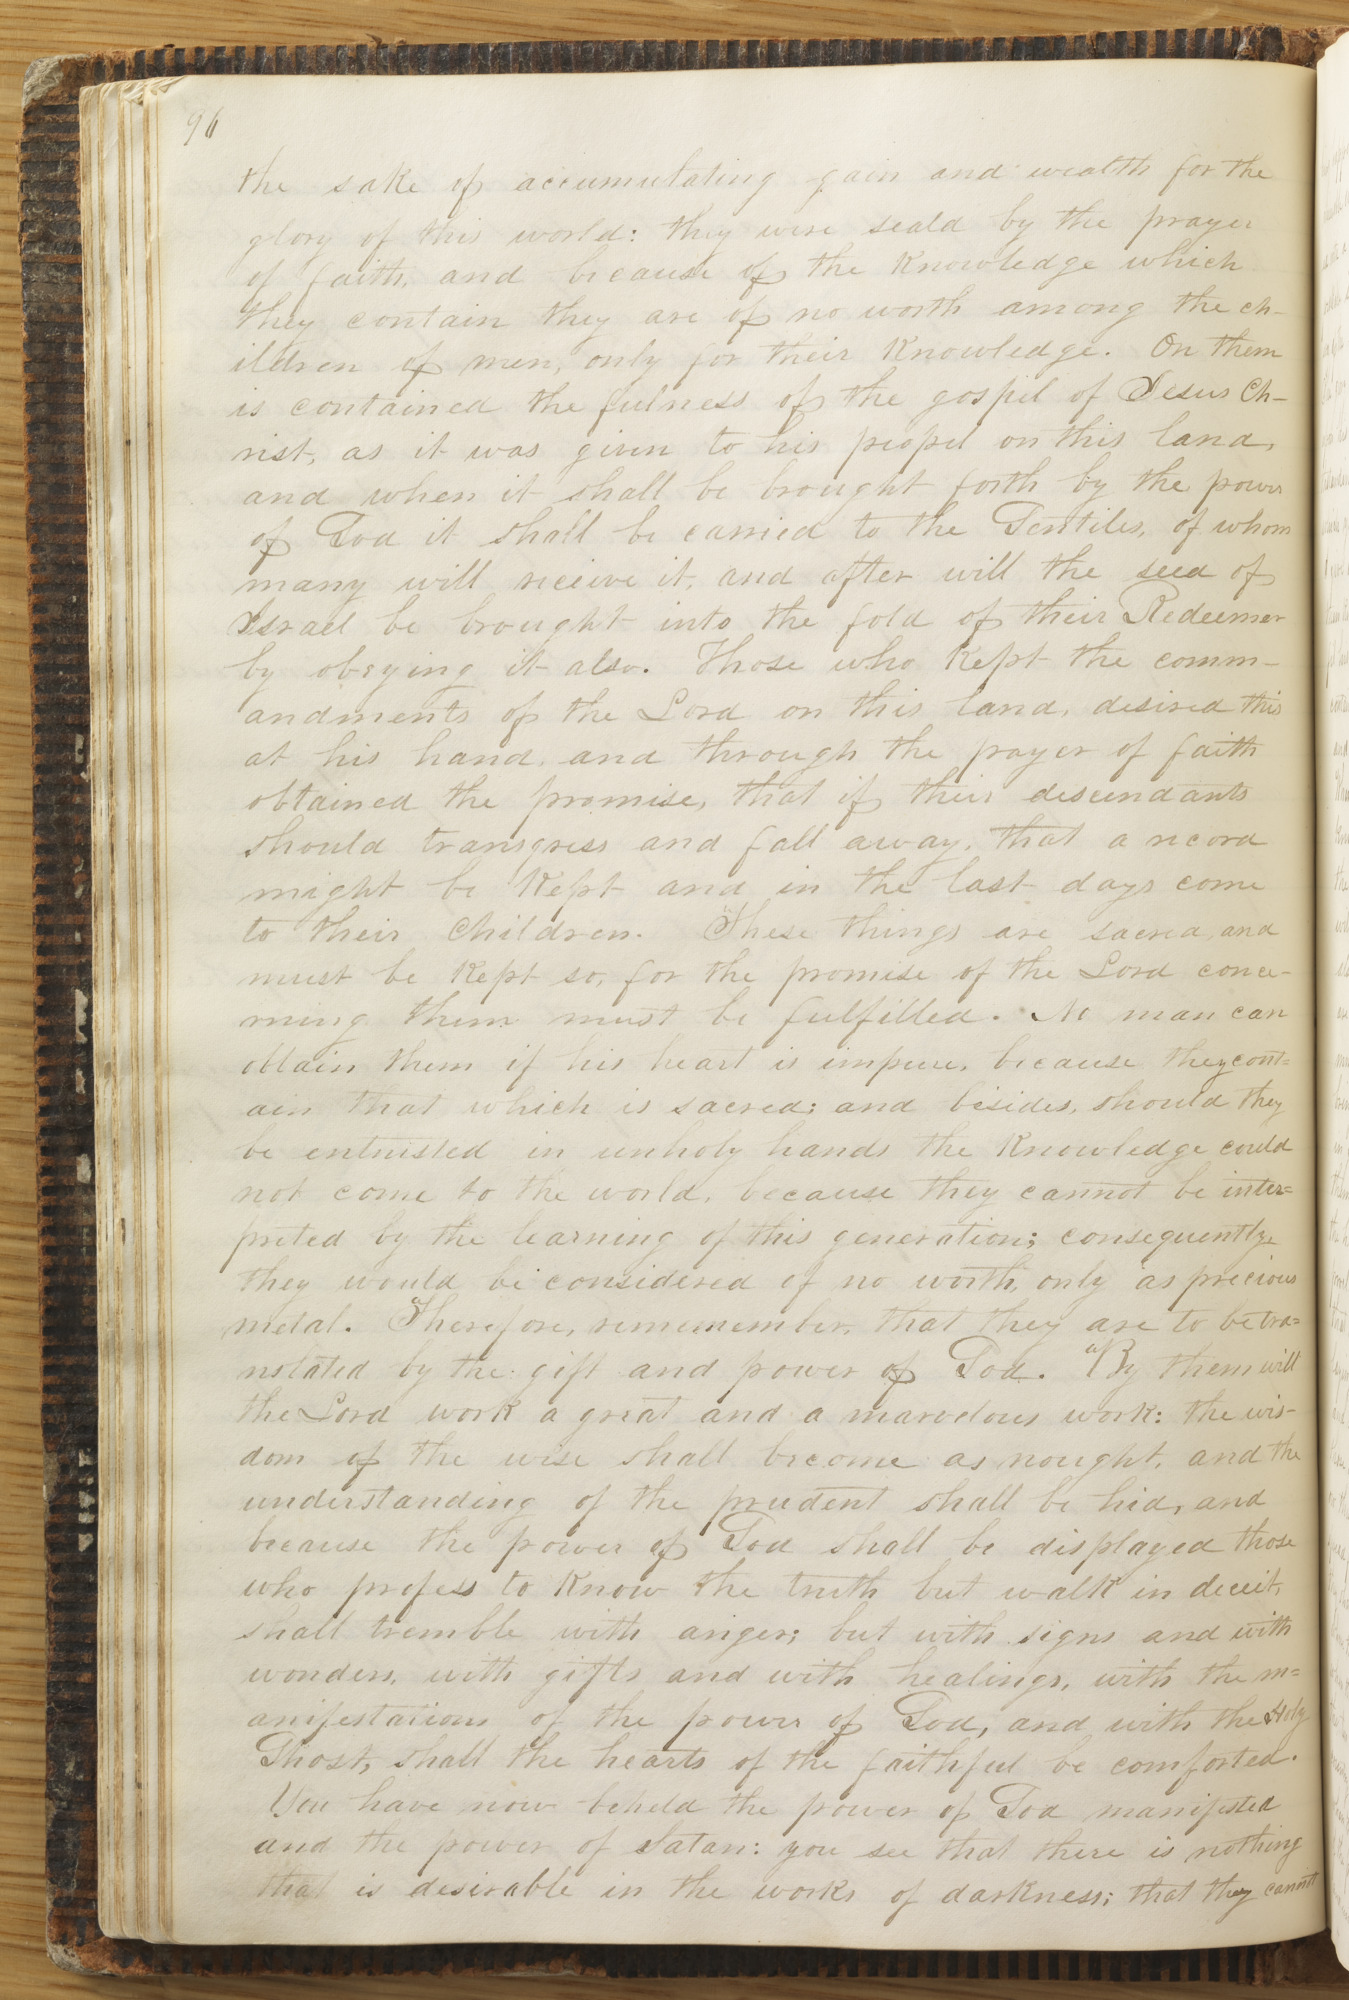 96
the sake of accumulating gain and wealth for the
glory of this world: they were seald by the prayer
of faith, and because of the Knowledge which
they contain they are of no worth among the ch-
ildren of men, only for their Knowledge. On them
is contained the fulness of the gospel of Jesus Ch-
rist, as it was given to his peopel on this land,
and when it shall be brought forth by the power
of God it shall be carried to the Gentiles, of whom
many will receive it, and after will the seed of
Israel be brought into the fold of their Redeemer
by obeying it also. Those who Kept the comm-
andments of the Lord on this land, desired this
at his hand, and through the prayer of faith
obtained the promise, that if their descendants
should transgress and fall away, that a record
might be Kept and in the last days come
to their Children. "These things are sacred, and
must be Kept so, for the promise of the Lord conce-
rning them must be fulfilled. No man can
obtain them if his heart is impure, because they cont=
ain that which is sacred; and besides, should they
be entrusted in unholy hands the Knowledge could
not come to the world, because they cannot be inter=
preted by the learning of this generation; consequently
they would be considered of no worth, only as precious
metal. "Therefore, rememember, that they are to be tra=
nslated by the gift and power of God. "By them will
the Lord work a great and a marvelous work: the wis-
dom of the wise shall become as nought, and the
understanding of the prudent shall be hid, and
because the power of God shall be displayed those
who profess to Know the truth but walk in deceit,
shall tremble with anger; but with signs and with
wonders, with gifts and with healings, with the m=
anifestations of the power of God, and with the Holy
Ghost, shall the hearts of the faithful be comforted.
You have now beheld the power of God manifested
and the power of Satan: you see that there is nothing
that is desirable in the works of darkness; that they cannot